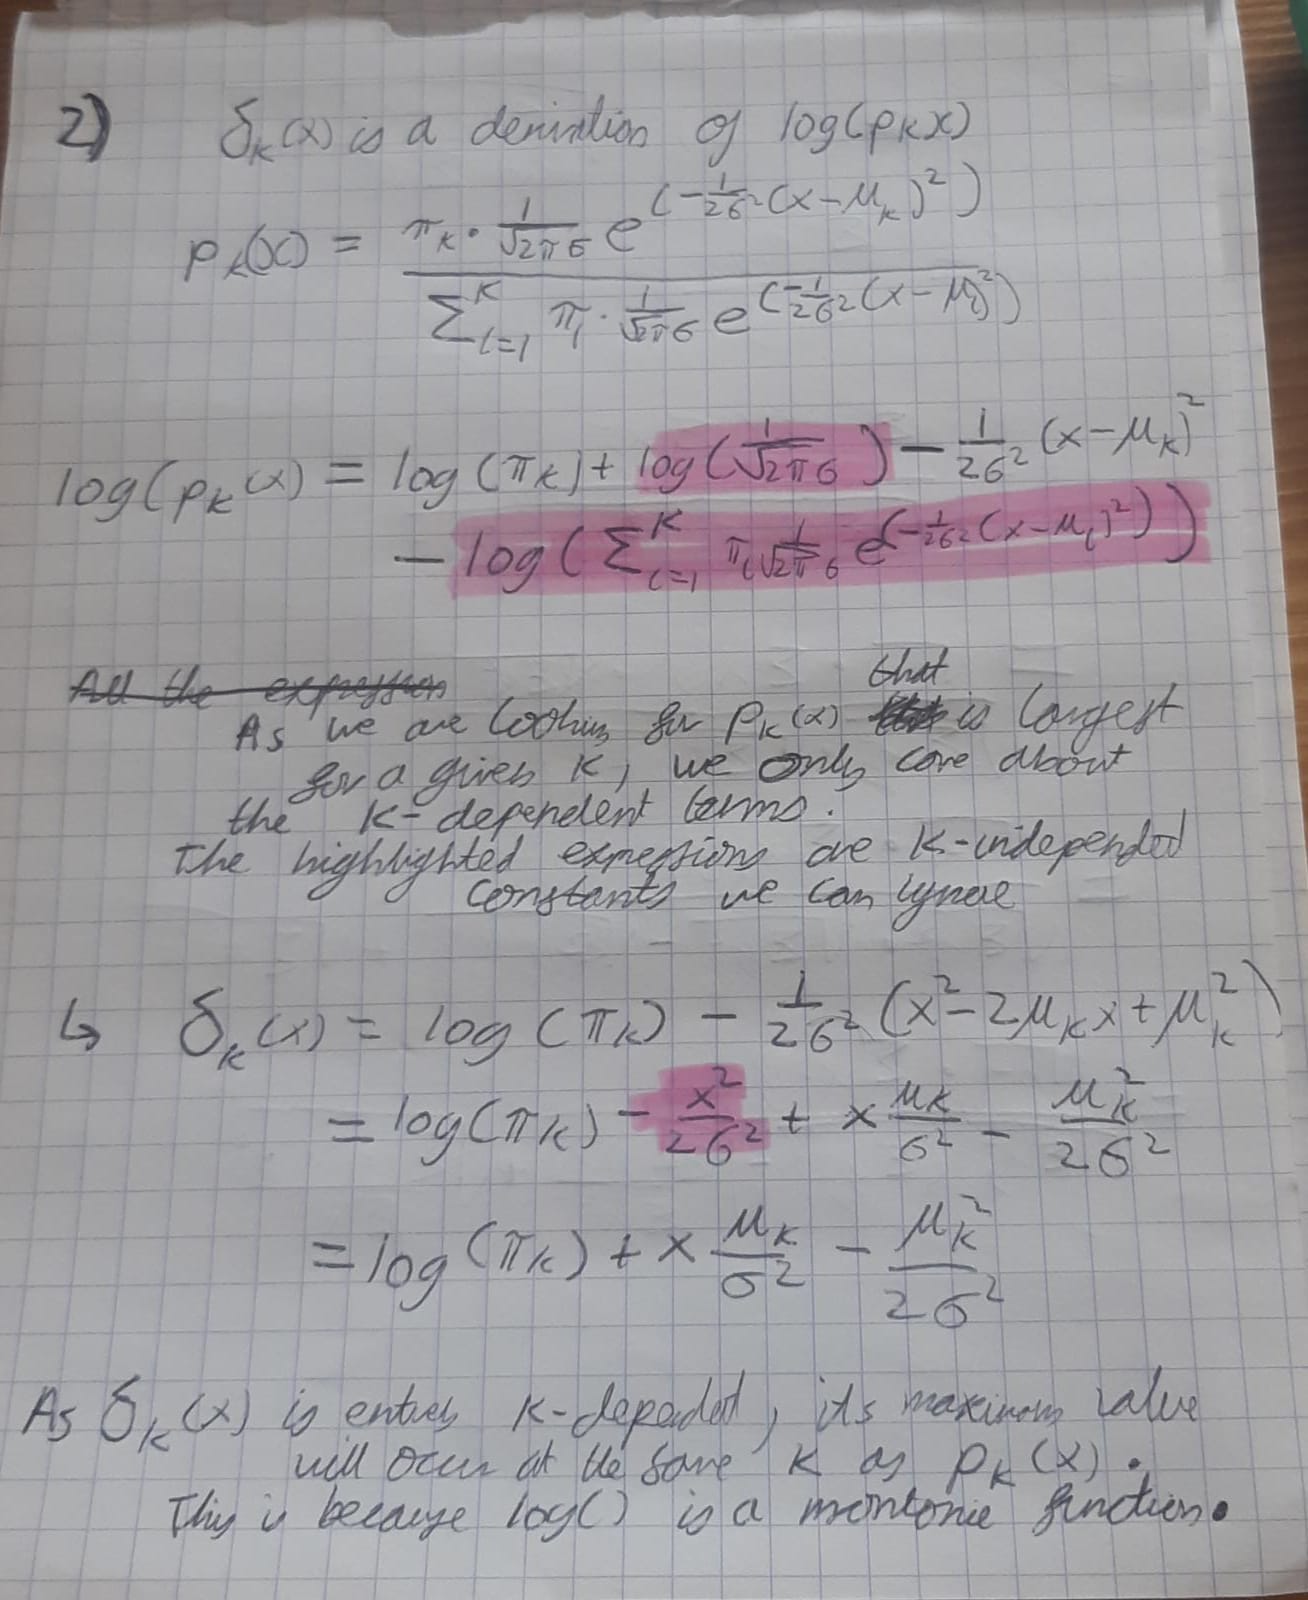 2) δₖ(x) is a derivation of log(pₖx)
pₖ(x) = πₖ · 1/√2πσ e^(-1/2σ²(x-μₖ)²) / Σᴷₗ₌₁ πₗ · 1/√2πσ e^(-1/2σ²(x-μₗ)²)
log(pₖ(x) = log(πₖ) + log(1/√2πσ) - 1/2σ² (x-μₖ)²
- log(Σᴷₗ₌₁ πₗ 1/√2πσ e^(-1/2σ²(x-μₗ)²))
All the expression
that
As we are looking for pₖ(x) is largest
for a given K, we only care about
the K-dependent terms.
The highlighted expressions are K-independent
constants we can ignore
↳ δₖ(x) = log(πₖ) - 1/2σ² (x² - 2μₖx + μₖ²)
= log(πₖ) - x²/2σ² + x μₖ/σ² - μₖ²/2σ²
= log(πₖ) + x μₖ/σ² - μₖ²/2σ²
As δₖ(x) is entirely K-dependent, its maximum value
will occur at the same K as pₖ(x).
This is because log() is a montonic function.